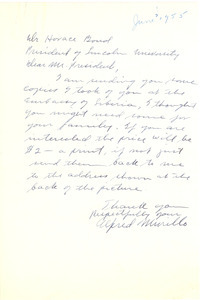 June, 1955
Mr Horace Bond
President of Lincoln University
Dear Mr. President,
I am sending you some
copies I took of you at the
Embassy of Liberia, I thought
you might need some for
your family. If you are
interested the price will be
$2— a print, if not just
send them back to me
to the address shown at the
back of the picture
Thank you
Respectfully Yours
Alfred Murillo